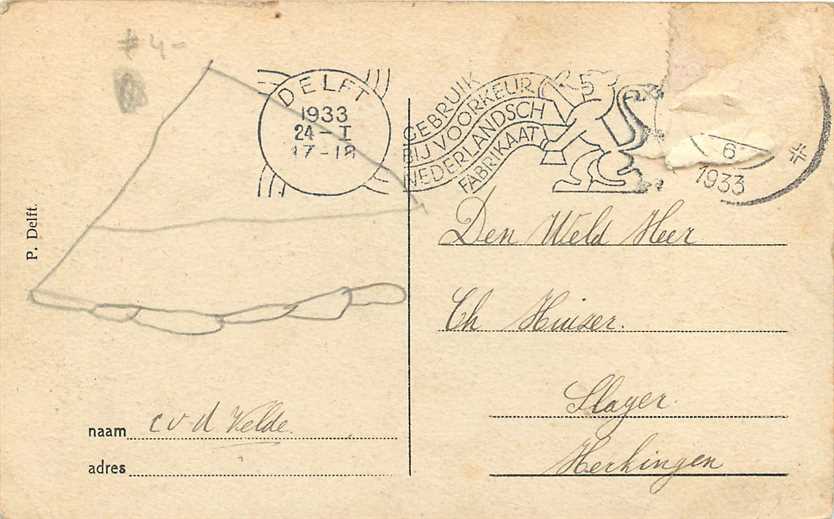 # 4-
DELFT
1933
24-I
17-18
GEBRUIK
BIJ VOORKEUR
NEDERLANDSCH
FABRIKAAT
6
1933
P. Delft.
Den Weld Heer
Ch Huizer.
Slager.
Herkingen
naam c v d Velde.
adres